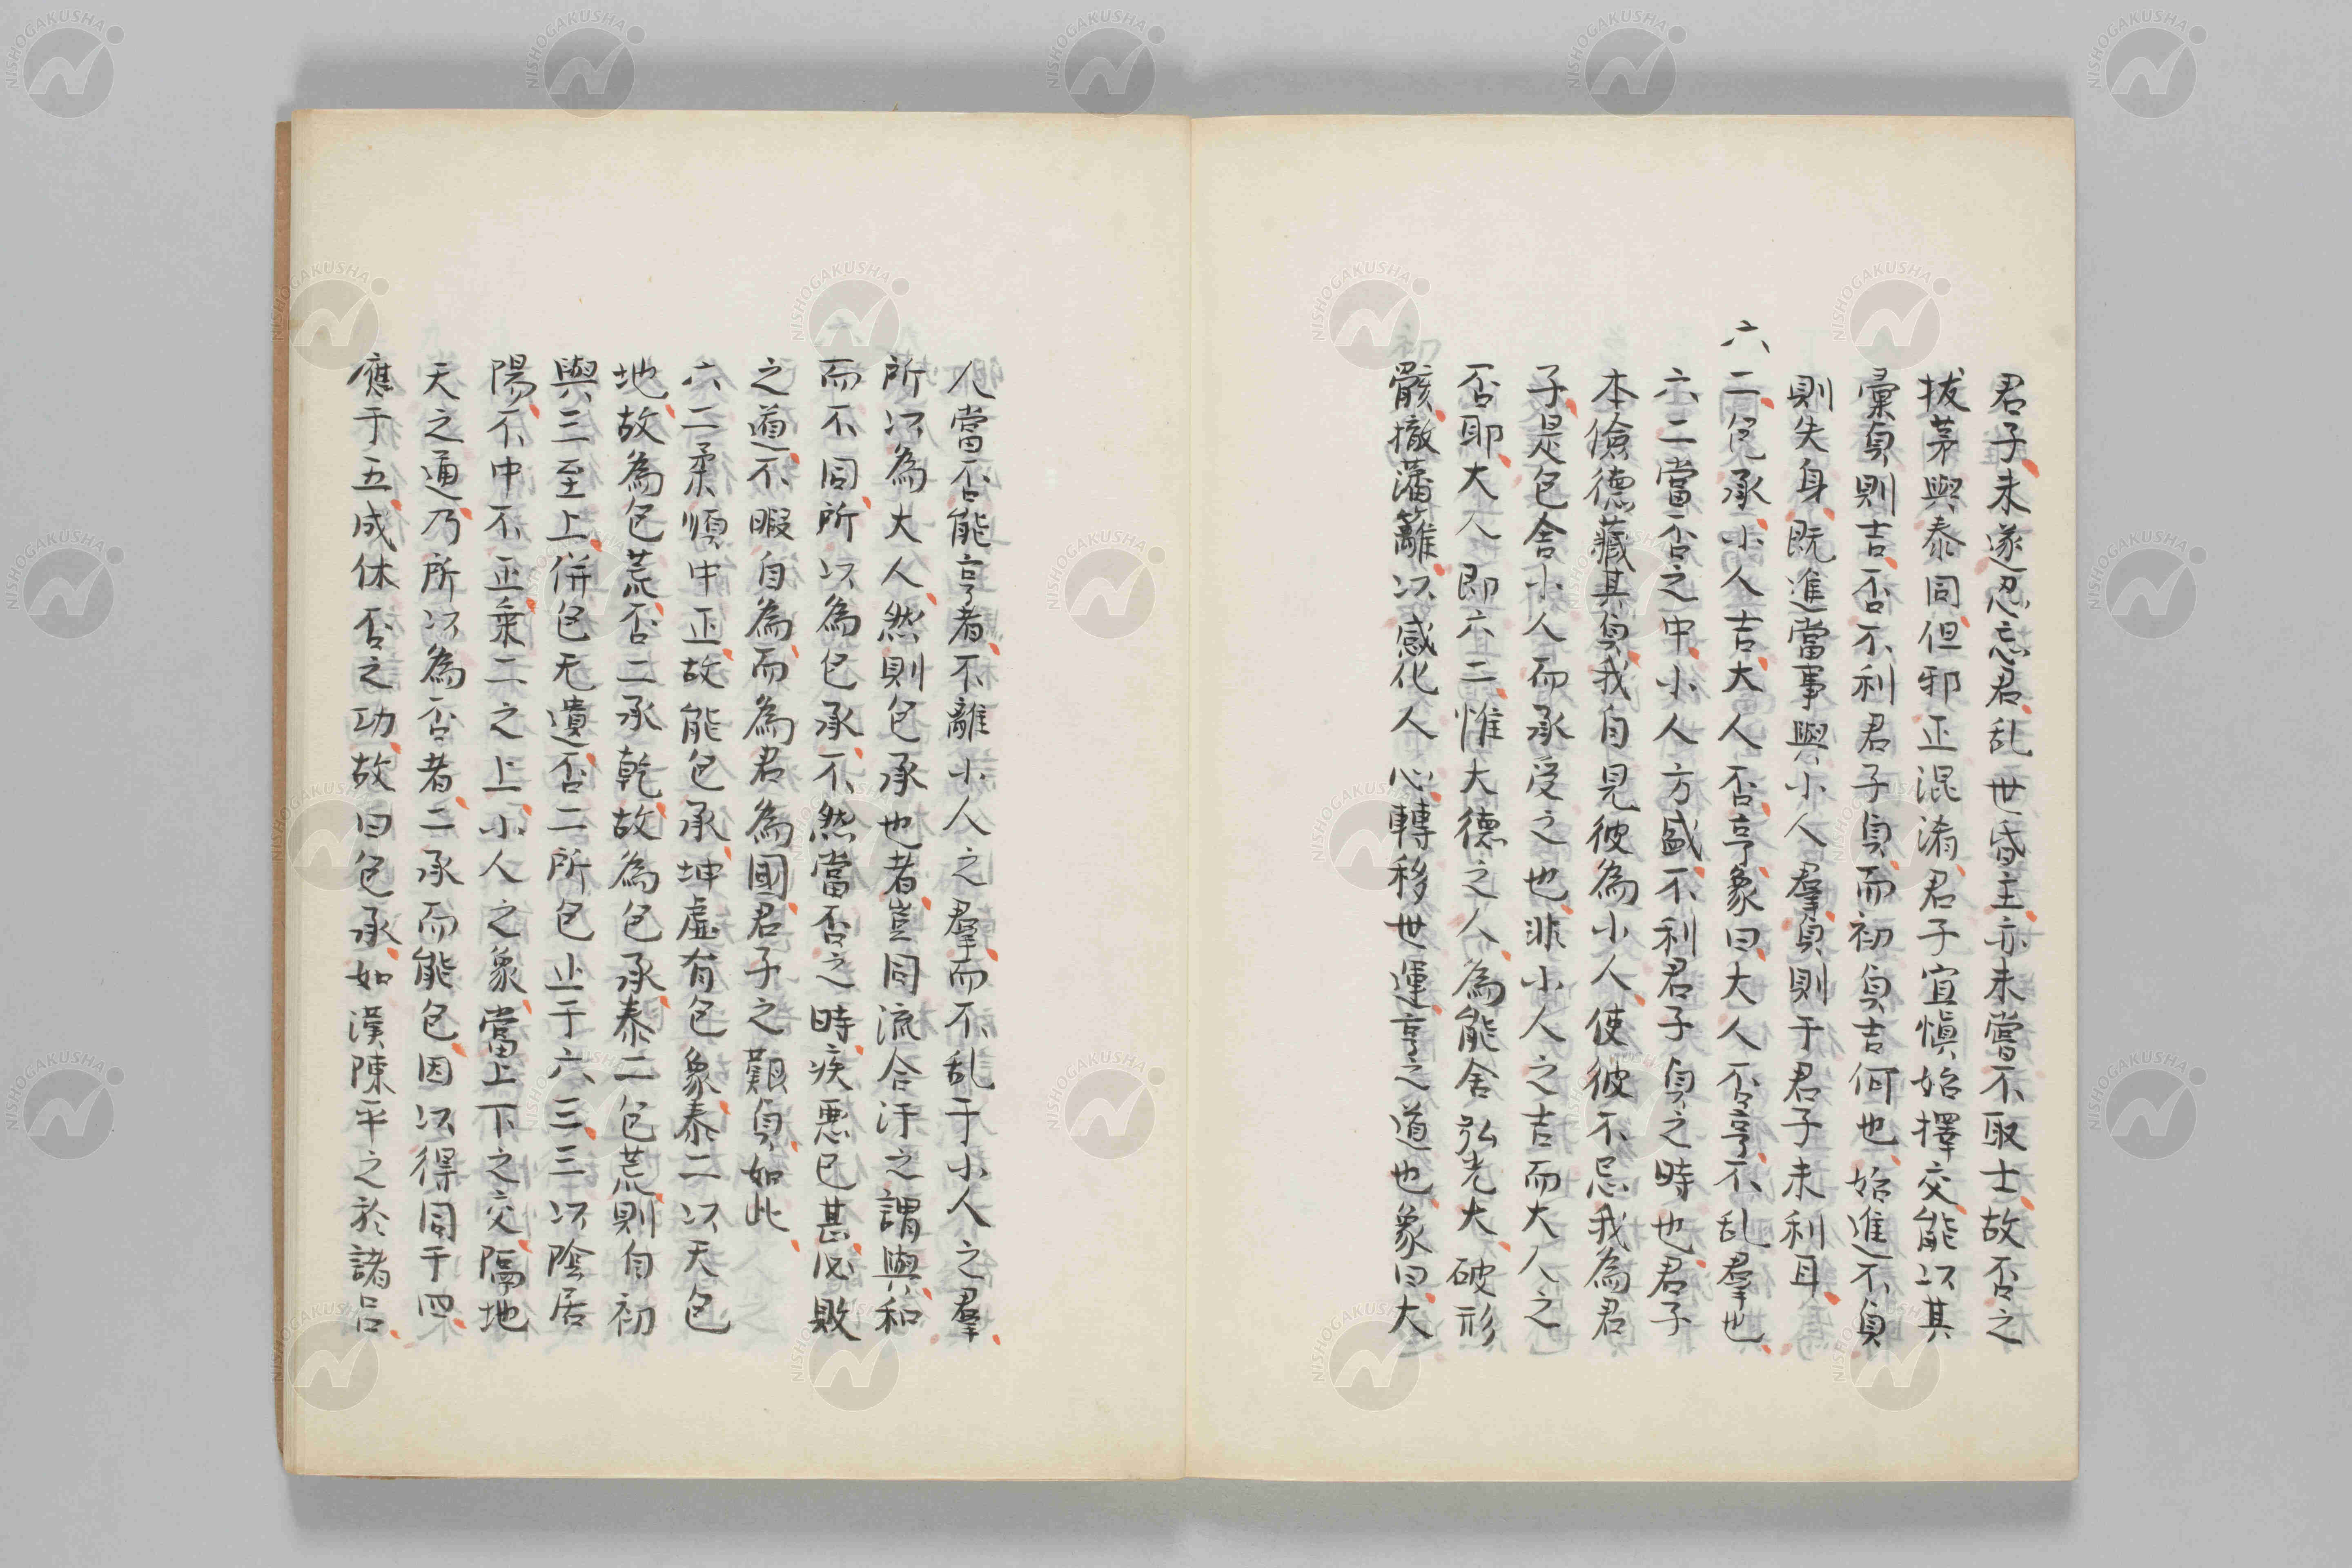 君子未遂忍忘君乱世昏主亦未嘗不取士故否之
拔茅與泰同但邪正混淆君子宜愼始擇交能以其
彙貞則吉否不利君子貞而初貞吉何也始進不貞
則失身既進當事與小人羣貞則于君子未利耳
六二包承小人吉大人否亨象曰大人否亨不乱羣也
六二當否之中小人方盛不利君子貞之時也君子
本儉德藏其貞我自見彼為小人使彼不忌我為君
子是包舍小人而承受之也非小人之吉而大人之
否耶大人即六二惟大德之人為能舍弘光大破形
骸撤藩籬以感化人心轉移世運亨之道也象曰大
人當否能亨者不離小人之羣而不乱于小人之羣
所以為大人然則包承也者豈同流合汙之謂與和
而不同所以為包承不然當否之時疾惡已甚必敗
之道不暇自為而為君為國君子之艱貞如此
六二柔順中正故能包承坤虛有包象泰二以天包
地故為包荒否二承乾故為包承泰二包荒則自初
與三至上併包无遺否二所包止于六三三以陰居
陽不中不正乘二之上小人之象當上下之交隔地
天之通乃所以為否者二承而能包因以得同于四
應于五成休否之功故曰包承如漢陳平之於諸呂
NISHOGAKUSHA